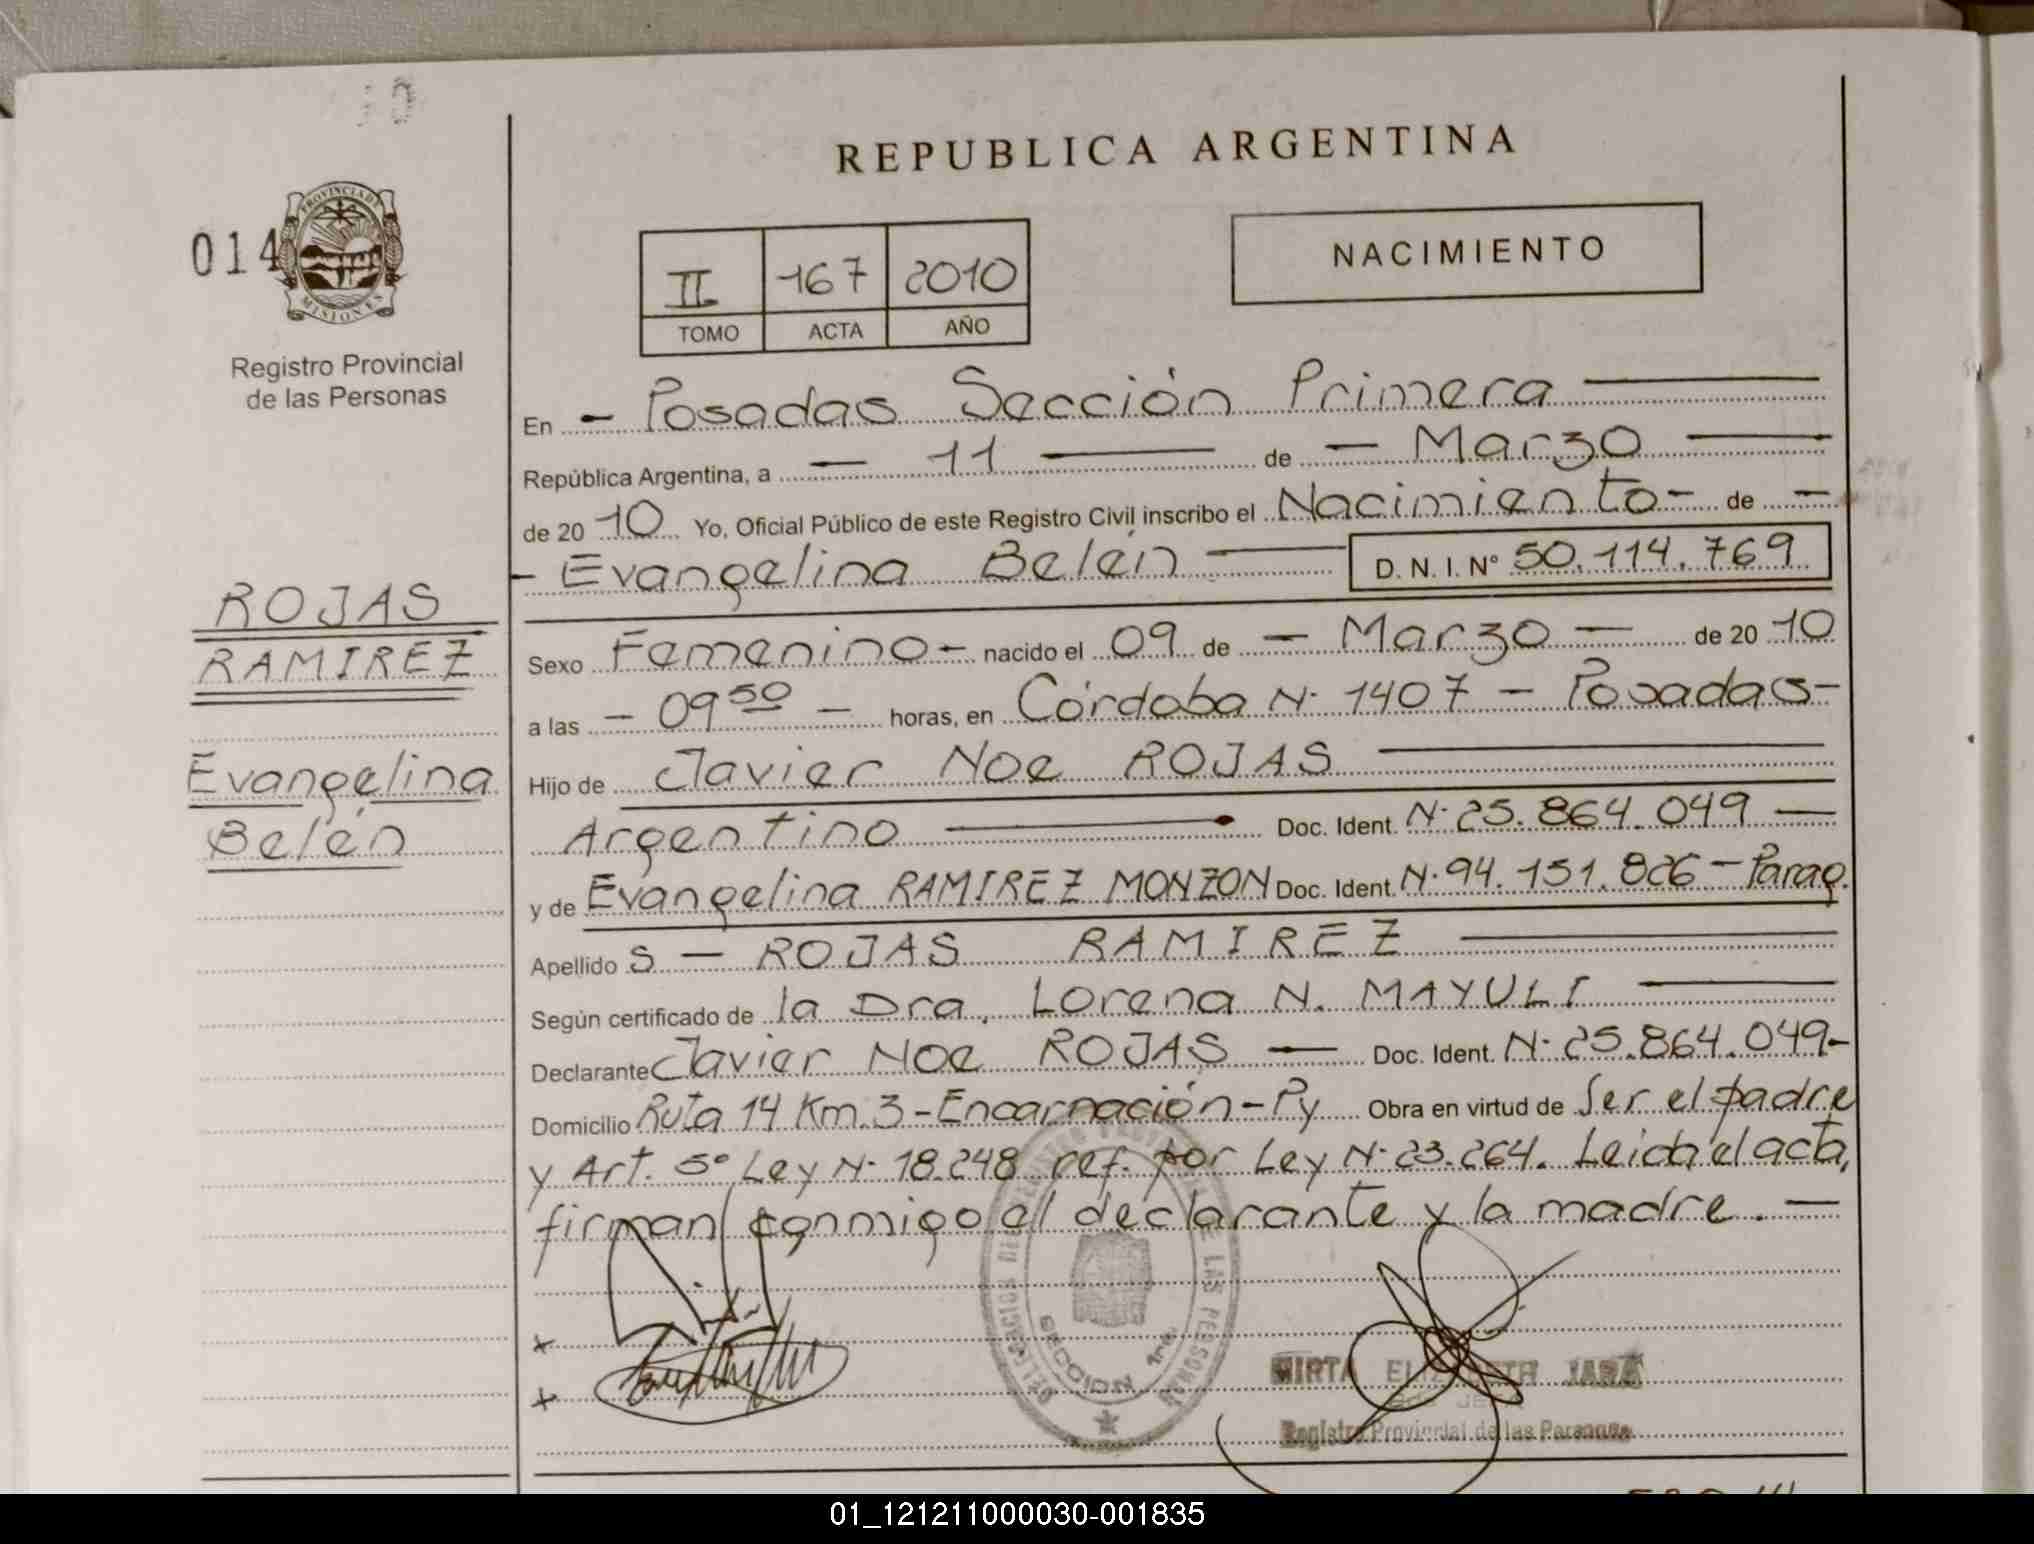 REPUBLICA ARGENTINA
014
PROVINCIA DE
MISIONES
Registro Provincial
de las Personas
II 167 2010
TOMO ACTA AÑO
NACIMIENTO
En - Posadas Sección Primera
República Argentina, a - 11 de - Marzo
de 20 10 Yo, Oficial Público de este Registro Civil inscribo el Nacimiento - de -
- Evangelina Belén D.N.I. N° 50.114.769
ROJAS
RAMIREZ
Evangelina
Belén
Sexo Femenino - nacido el 09 de - Marzo - de 20 10
a las - 09 50 - horas, en Córdoba N° 1407 - Posadas -
Hijo de Javier Noe ROJAS
Argentino Doc. Ident. N° 25.864.049 -
y de Evangelina RAMIREZ MONZON Doc. Ident. N° 94.151.826 - Parag.
Apellido s - ROJAS RAMIREZ
Según certificado de la Dra. Lorena N. MAYULI
Declarante Javier Noe ROJAS - Doc. Ident. N° 25.864.049 -
Domicilio Ruta 14 Km. 3 - Encarnación - Py Obra en virtud de Ser el padre
y Art. 5° Ley N° 18.248 ref. por Ley N° 23.264. Leida el acta,
firman conmigo el declarante y la madre. -
SECCION 1ra
MIRTA ELIZABETH JARA
Registro Provincial de las Personas
01_121211000030-001835